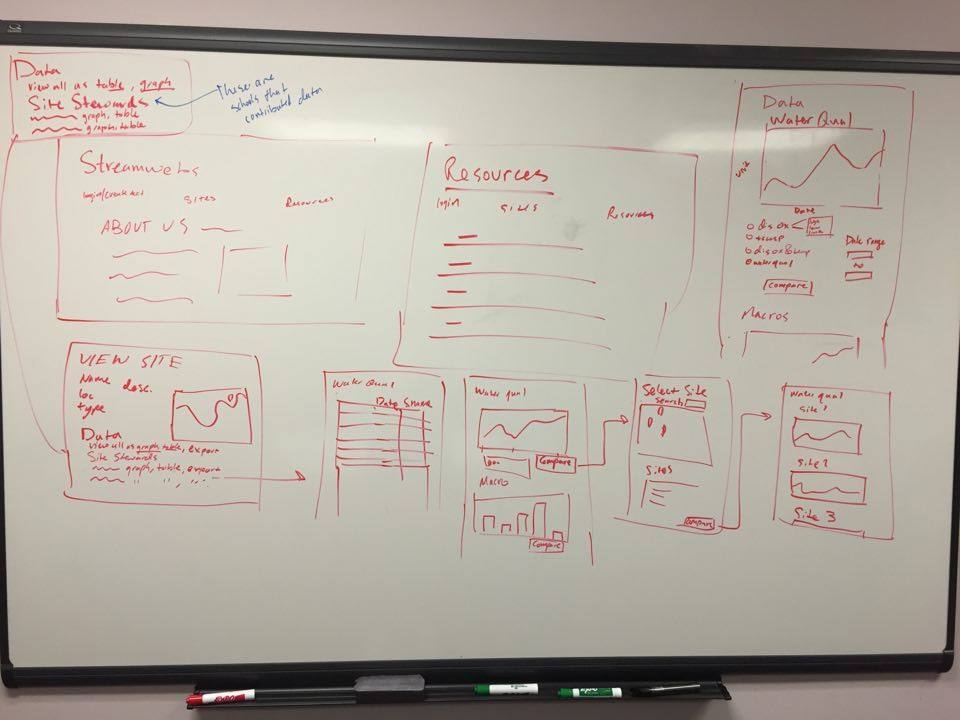 Data
view all as table, graph
Site Stewards
graph, table
graph, table
These are
schools that
contributed data
Streamwebs
login/create acct
SITES
Resources
ABOUT US
Resources
login
SITES
Resources
Data
Water Qual
Date
dis ox
temp
dis ox & temp
water qual
Date range
to
compare
Macros
VIEW SITE
Name desc.
loc
type
Data
view all as graph, table, export
Site Stewards
graph, table, export
" " , " , "
Water Qual
Date
Water qual
Compare
Macro
Compare
Select Site
search
Sites
Compare
Water qual
Site 1
Site 2
Site 3
EXPO
EXPO